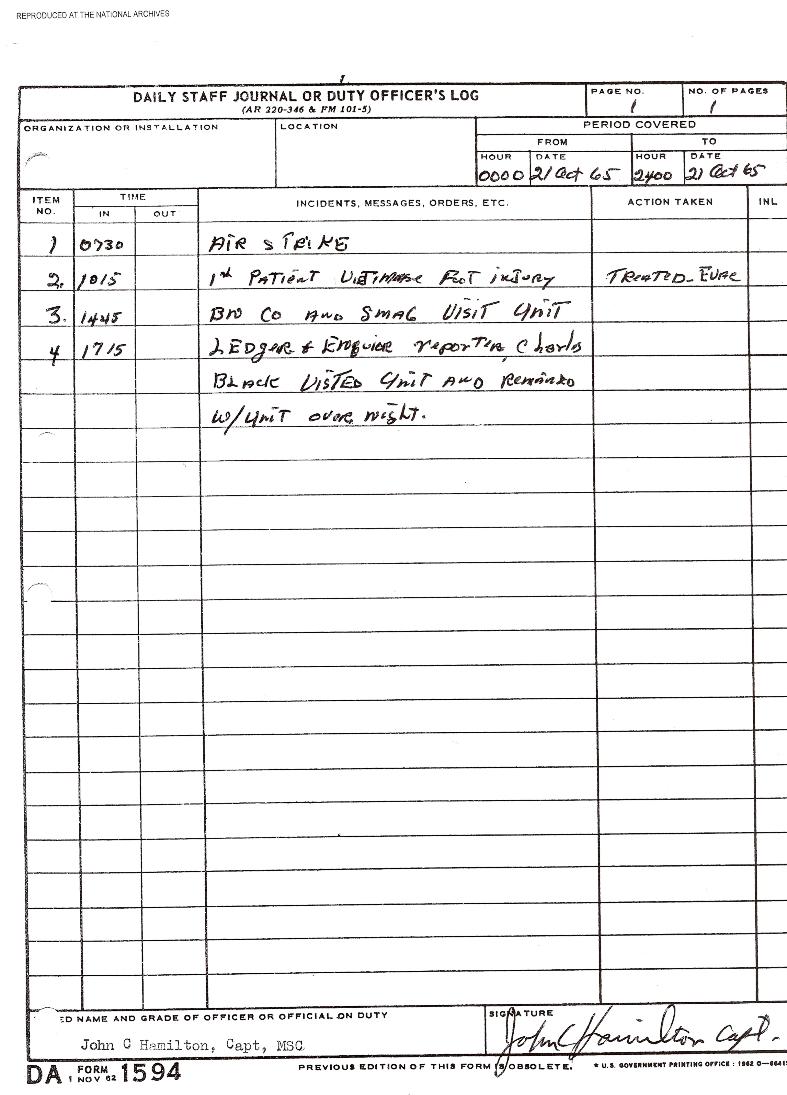 REPRODUCED AT THE NATIONAL ARCHIVES
1
DAILY STAFF JOURNAL OR DUTY OFFICER'S LOG
(AR 220-346 & FM 101-5)
PAGE NO.
1
NO. OF PAGES
1
ORGANIZATION OR INSTALLATION
LOCATION
PERIOD COVERED
FROM
TO
HOUR DATE HOUR DATE
0000 21 Oct 65 2400 21 Oct 65
ITEM NO. TIME INCIDENTS, MESSAGES, ORDERS, ETC. ACTION TAKEN INL
IN OUT
1 0730 AIR STRIKE
2. 1015 1st PATIENT VIETNAMESE FOOT INJURY TREATED-EVAC
3. 1445 BN CO AND SMAG VISIT UNIT
4 1715 LEDGER & ENQUIER reporter, Charls
BLACK VISTED UNIT AND Remained
W/UNIT over night.
ED NAME AND GRADE OF OFFICER OR OFFICIAL ON DUTY
John C Hamilton, Capt, MSC
SIGNATURE
John C Hamilton Capt.
DA FORM 1 NOV 62 1594
PREVIOUS EDITION OF THIS FORM IS OBSOLETE.
* U.S. GOVERNMENT PRINTING OFFICE : 1962 O—6641